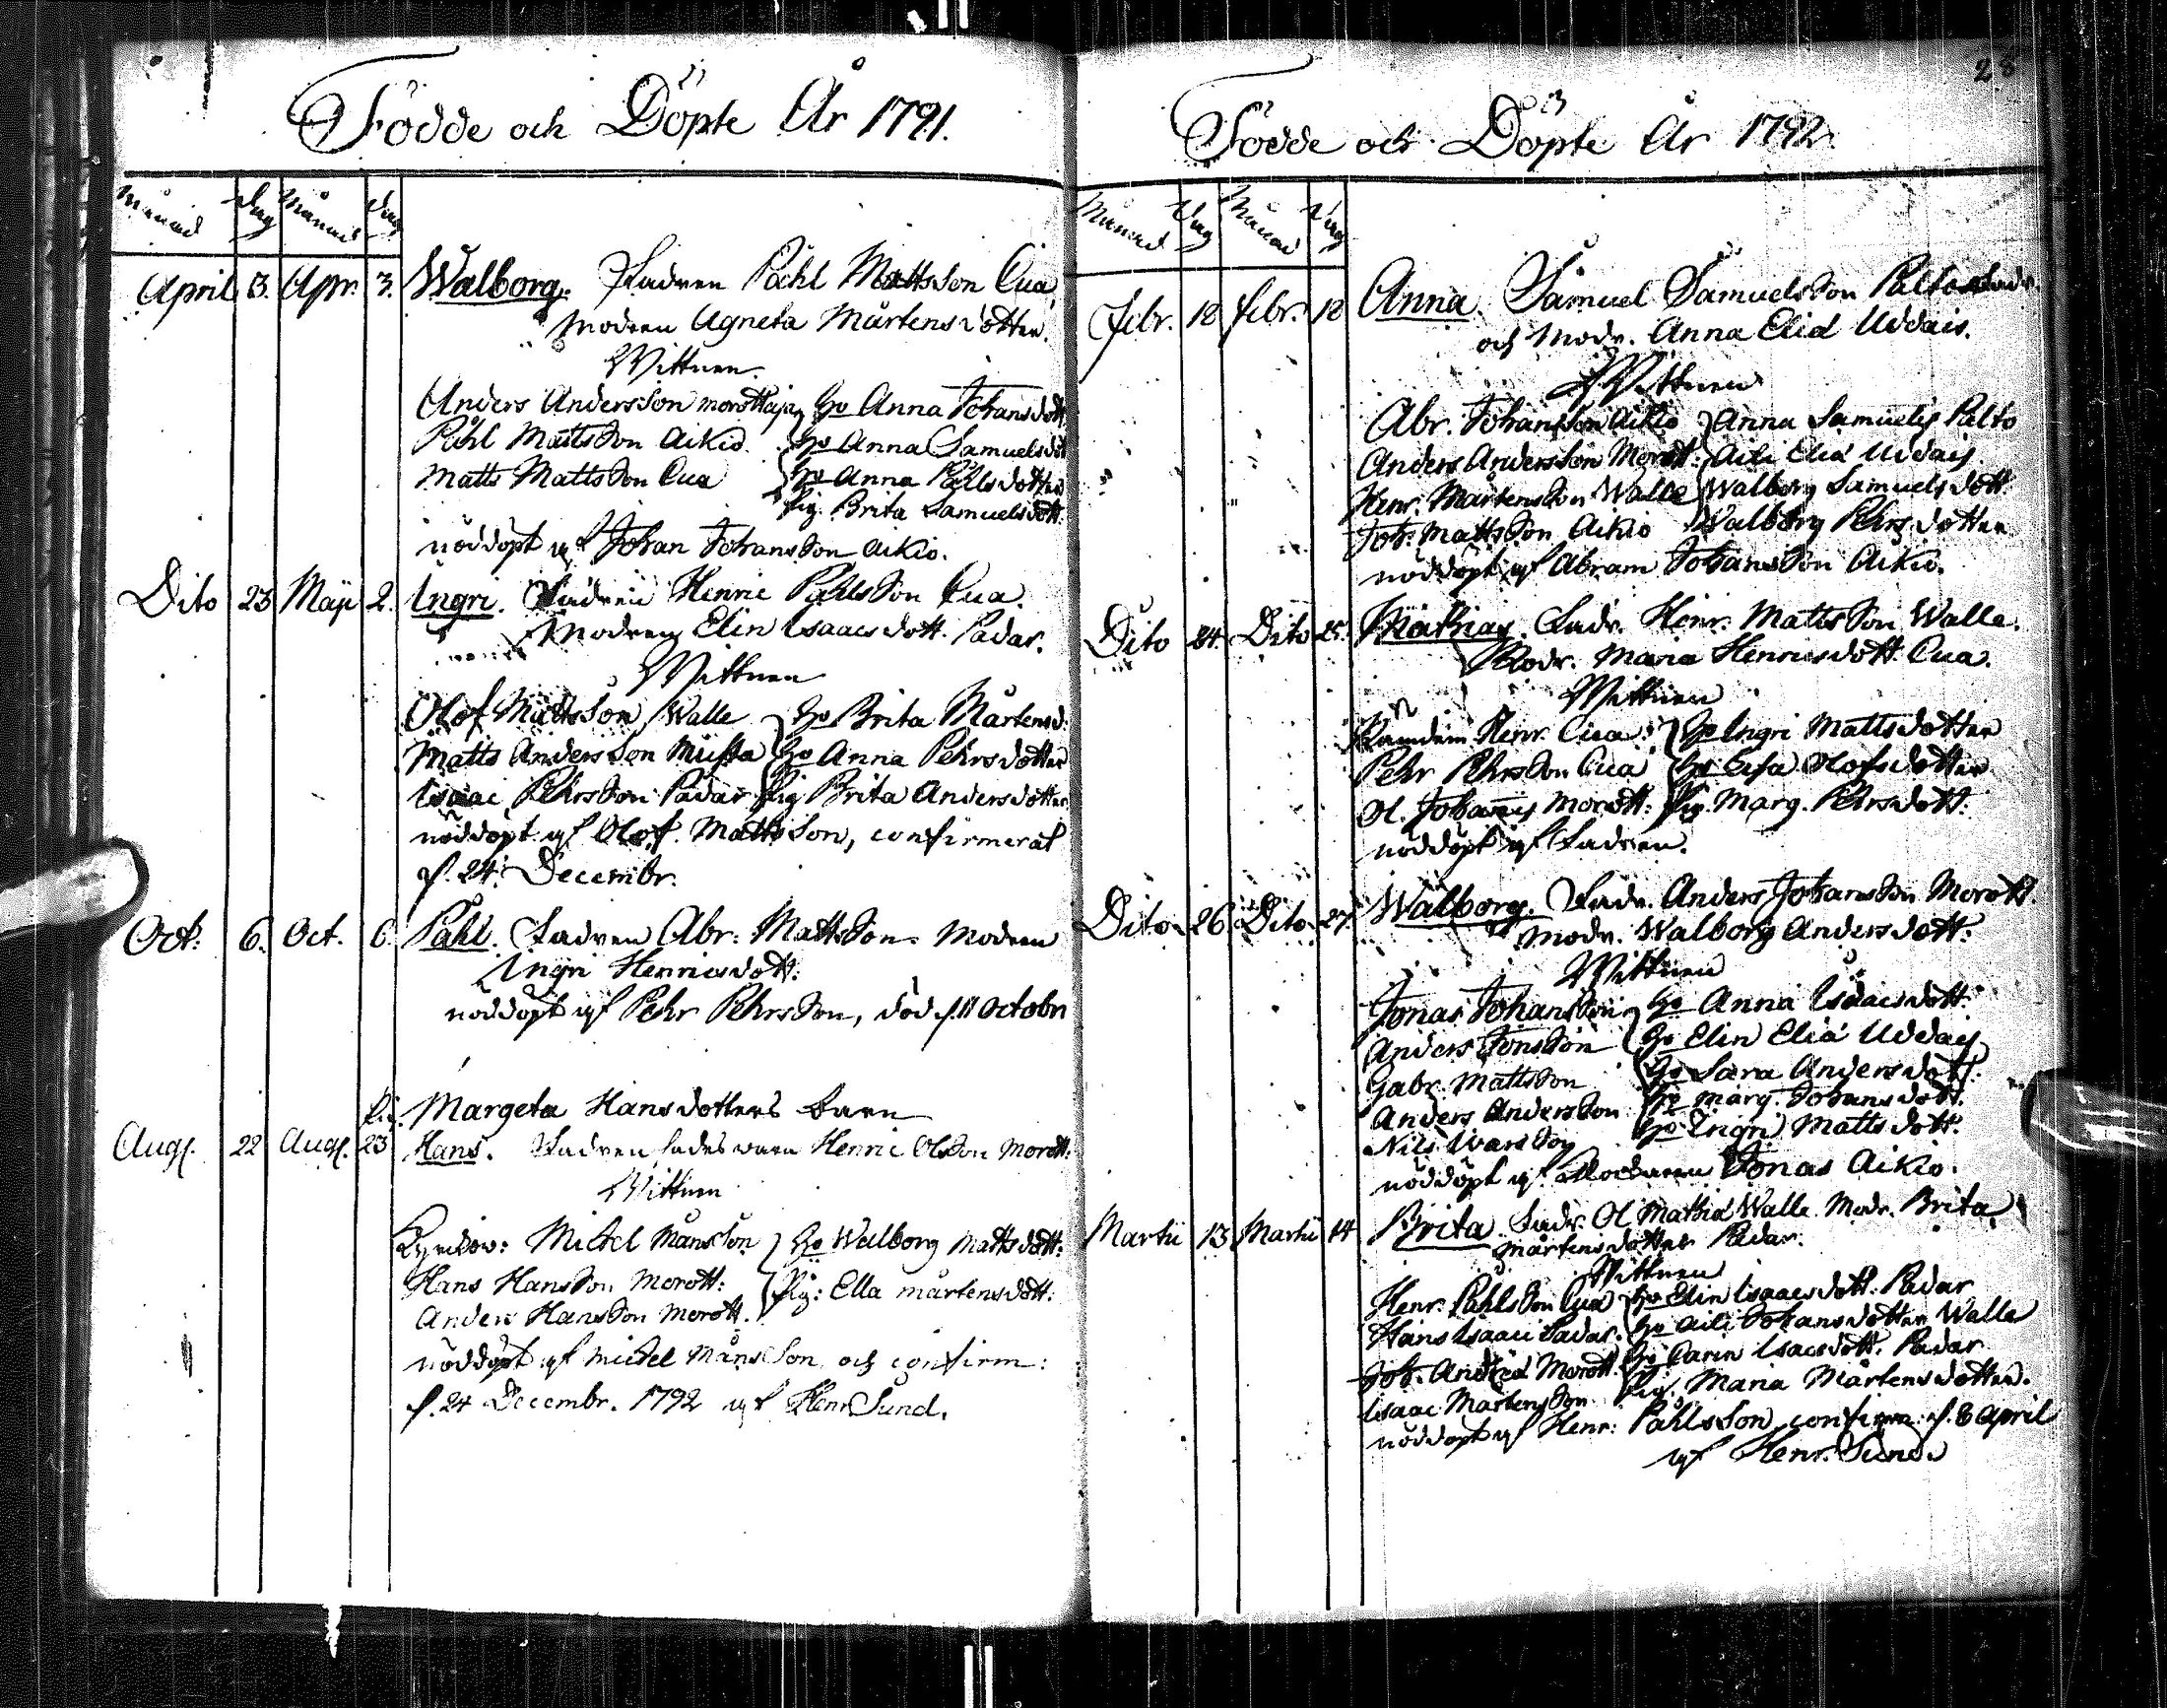 Födde och Döpte År 1791.
Månad Dag Månad Dag
April 3. Apr. 3. Walborg. Fadren Påhl Mattsson Cua,
Modren Agneta Mårtensdotter.
Wittnen.
Anders Andersson morottaja, Ho Anna Johansdott
Påhl Mattsson Aikio. Ho Anna Samuelsdot
Matts Mattsson Cua Ho Anna Påhlsdotter
Pig. Brita Samuelsdott.
nöddöpt af Johan Johansson Aikio.
Dito 23 Maji 2. Ingri. Fadren Henric Påhlsson Cua.
Modren Elin Isaacsdott. Padar.
Wittnen
Olof Mattsson Walle Ho Brita Mårtensd.
Matts Andersson Musta Ho Anna Pehrsdotter
Isaac Pehrsson Padar Pig Brita Andersdotter
nöddöpt af Olof Mattsson, confirmerat
d. 24. Decembr.
Oct. 6. Oct. 6. Påhl. Fadren Abr: Mattsson. Modren
Ingri Henricsdott:
nöddöpt af Pehr Pehrsson, död d. 11 Octobr
Pig. Margeta Hansdotters Barn
Aug. 22 Aug. 23 Hans. Fadren sades wara Henric Olsson Morott.
Wittnen
Michel Månsson Ho Walborg Mattsdott:
Hans Hansson Morott: Pig: Ella Mårtensdott:
Anders Hansson Morott.
nöddöpt af Michel Månsson och confirm:
d. 24 Decembr. 1792 af Henr Sund.
28
Födde och Döpte År 1792.
Månad Dag Månad Dag
Febr. 18 Febr. 18 Anna. Samuel Samuelsson Palto Fadr.
och Modr. Anna Eliæ Uddais.
Wittnen
Abr. Johansson Aikio Anna Samuelis Palto
Anders Andersson Morott: Aili Eliæ Uddais
Henr. Mårtensson Walle Walborg Samuelsdott.
Joh. Mattsson Aikio Walborg Pehrsdotter
nöddöpt af Abram Johansson Aikio.
Dito 24. Dito 25. Mathias. Fadr. Henr. Mattsson Walle.
Modr. Maria Henricsdott. Cua.
Wittnen
Henr. Cua Ho Ingri Mattsdotter
Pehr Pehrsson Cua Ho Elsa Olofsdotter
Ol. Johannis Morott: Pig. Marg. Pehrsdott:
nöddöpt af Fadren.
Dito 26 Dito 27. Walborg. Fadr. Anders Johansson Morott.
Modr. Walborg Andersdott:
Wittnen
Jonas Johansson Ho Anna Isaacsdott.
Anders Jonsson Ho Elin Eliæ Uddais
Gabr. Mattsson Ho Sara Andersdott.
Anders Andersson Ho Marg. Johansdott.
Nils Ivarsson Ho Ingri Mattsdott.
nöddöpt af Klockaren Jonas Aikio.
Martii 13 Martii 14 Brita Fadr. Ol Mathiæ Walle Modr. Brita
Mårtensdotter Padar.
Wittnen
Henr. Påhlsson Cua Ho Elin Isaacsdott. Padar
Hans Isaaci Padar. Ho Aili Johansdotter Walle
Joh. Andreæ Morott. Ho Carin Isacsdott. Padar
Isaac Mårtensson Pig. Maria Mårtensdotter.
nöddöpt af Henr: Påhlsson confirm: d. 8 April
af Henr. Sund.